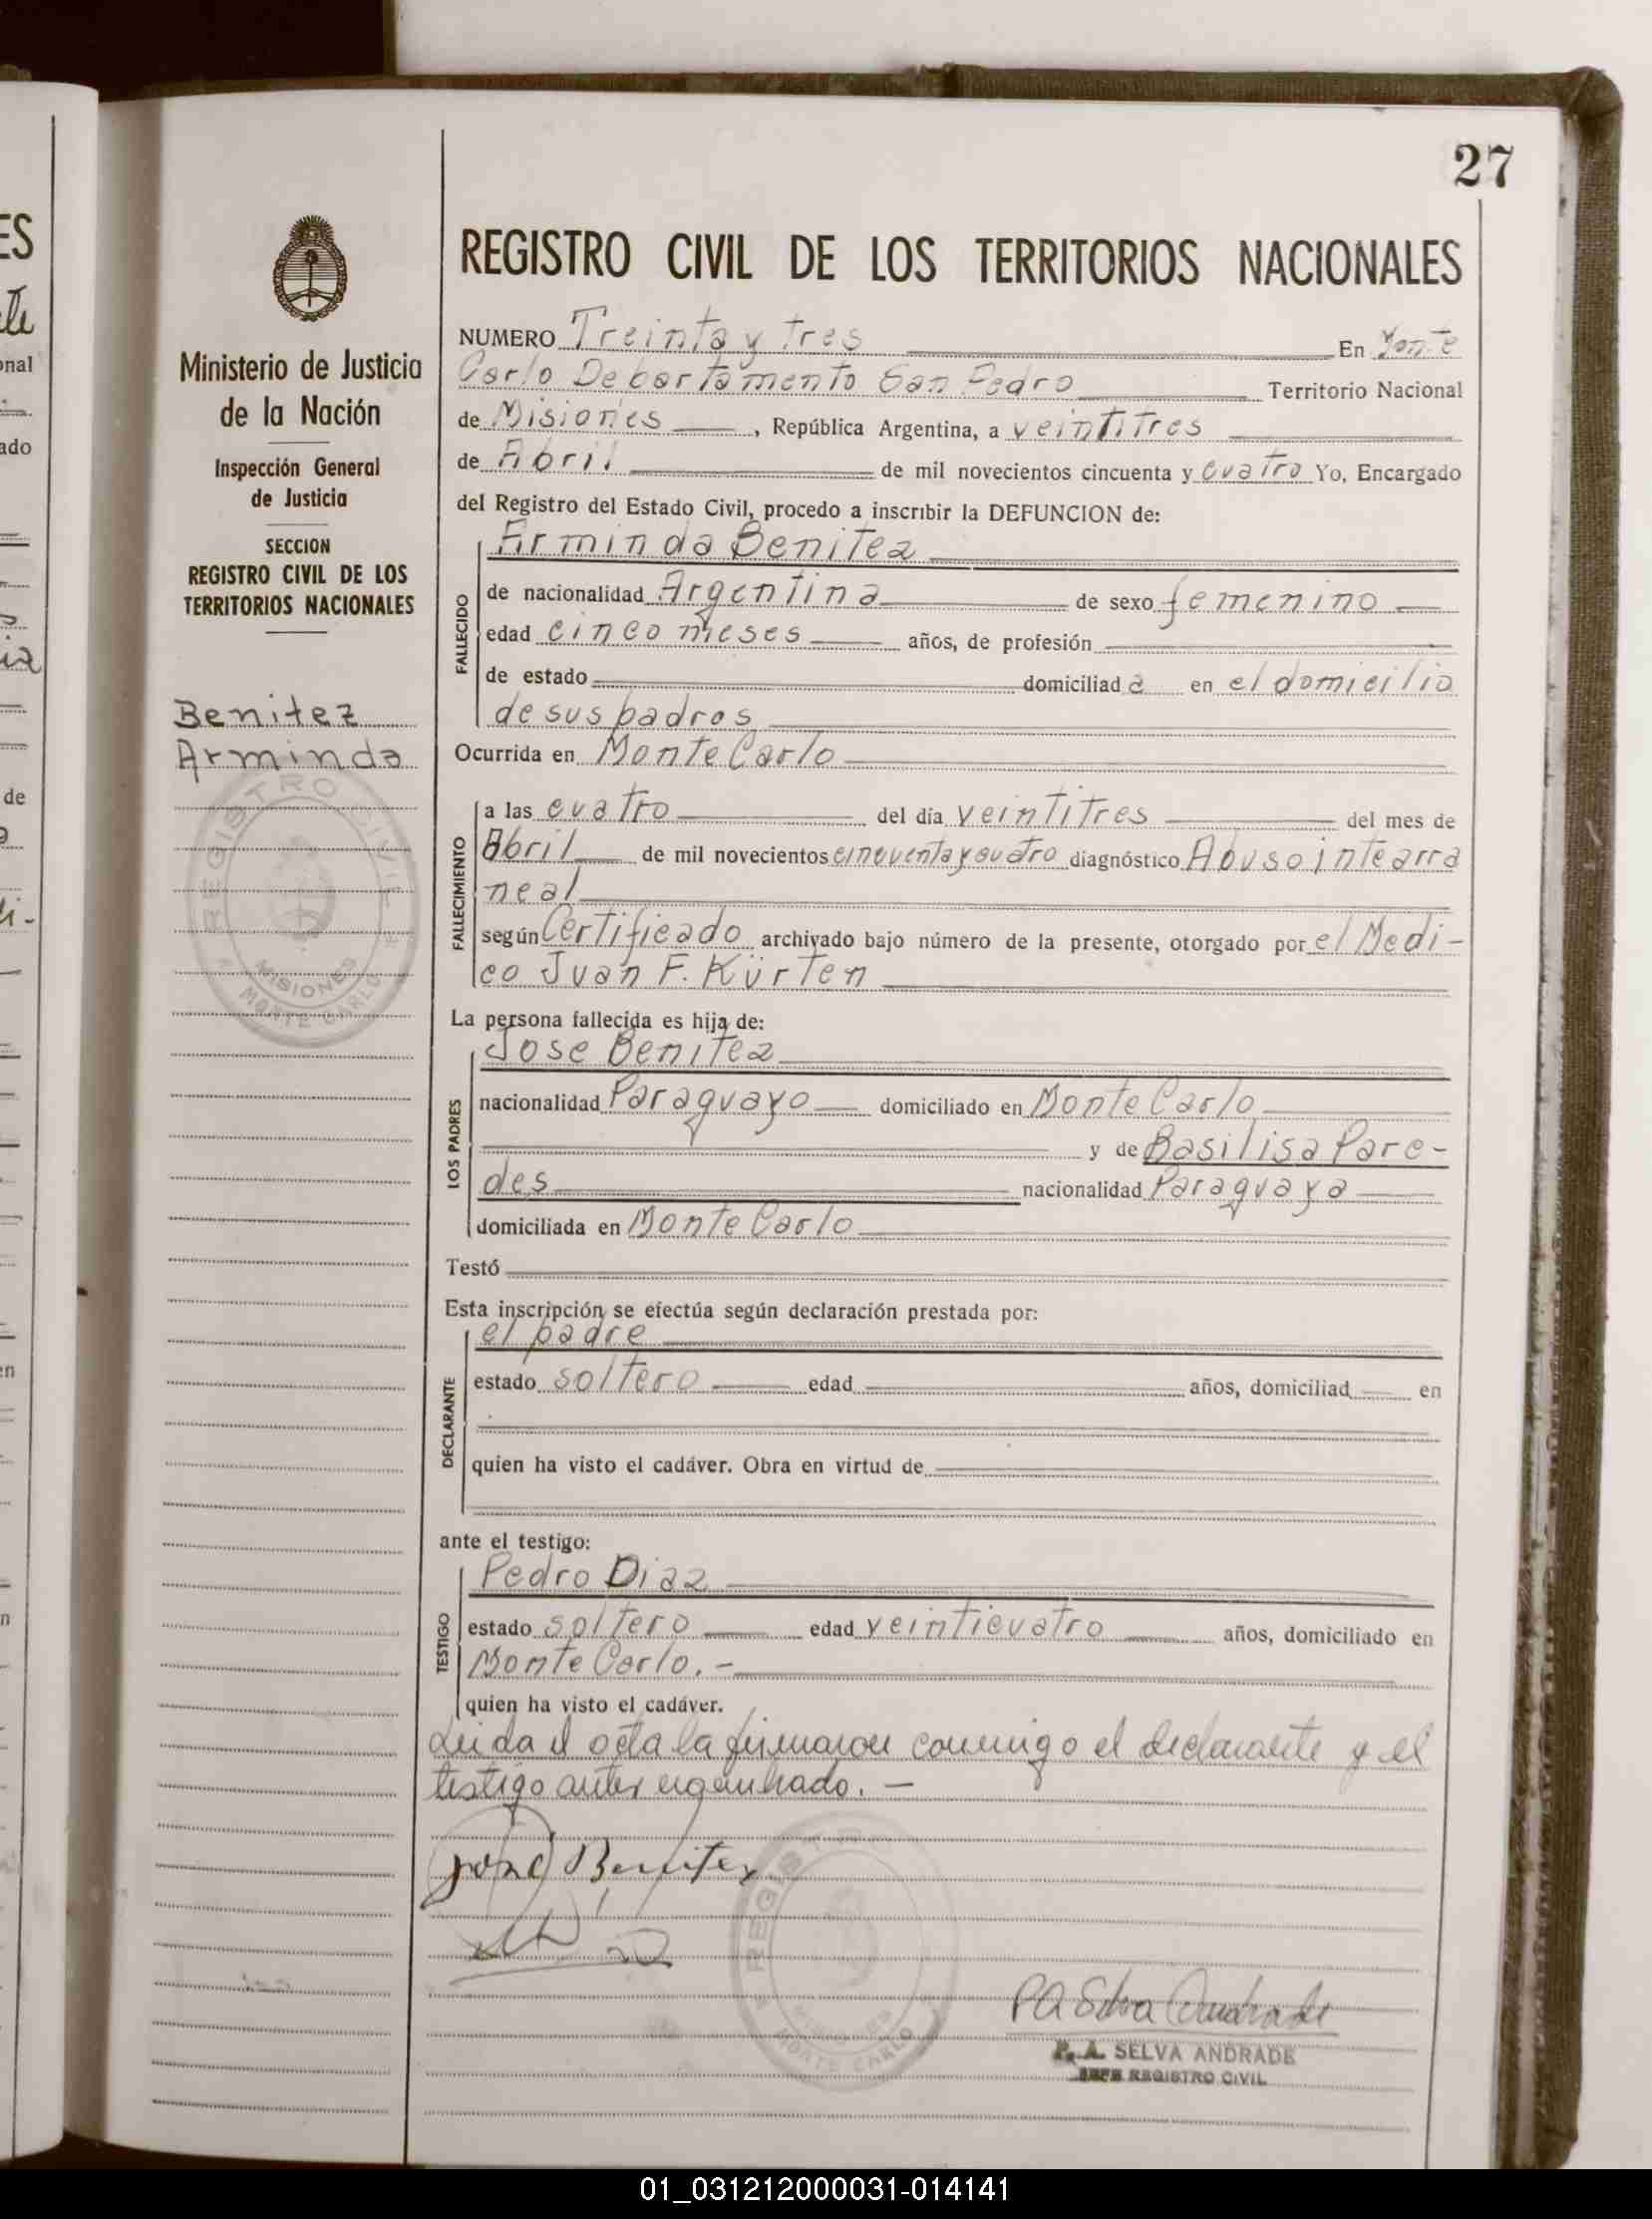 27
REGISTRO CIVIL DE LOS TERRITORIOS NACIONALES
Ministerio de Justicia
de la Nación
Inspección General
de Justicia
SECCION
REGISTRO CIVIL DE LOS
TERRITORIOS NACIONALES
Benitez
Arminda
REGISTRO CIVIL
MISIONES
MONTE CARLO
NUMERO Treinta y tres En Monte
Carlo Debartamento San Pedro Territorio Nacional
de Misiones, República Argentina, a veintitres
de Abril de mil novecientos cincuenta y cuatro Yo, Encargado
del Registro del Estado Civil, procedo a inscribir la DEFUNCION de:
FALLECIDO
Arminda Benitez
de nacionalidad Argentina de sexo femenino
edad cinco meses años, de profesión
de estado domiciliada en el domicilio
de sus padres
Ocurrida en Monte Carlo
FALLECIMIENTO
a las cuatro del día veintitres del mes de
Abril de mil novecientos cincuenta y cuatro diagnóstico
neal
según Certificado archivado bajo número de la presente, otorgado por el Medi-
co Juan F. Kürten
La persona fallecida es hija de:
LOS PADRES
Jose Benitez
nacionalidad Paraguayo domiciliado en Monte Carlo
y de Basilisa Pare-
des nacionalidad Paraguaya
domiciliada en Monte Carlo
Testó
Esta inscripción se efectúa según declaración prestada por:
DECLARANTE
el padre
estado soltero edad años, domiciliad en
quien ha visto el cadáver. Obra en virtud de
ante el testigo:
TESTIGO
Pedro Diaz
estado soltero edad veinticuatro años, domiciliado en
Monte Carlo.-
quien ha visto el cadáver.
Leida el acta la firmaron conmigo el declarante y el
testigo antes nombrado.—
José Benitez
REGISTRO
MISIONES
MONTE CARLO
PA Selva Andrade
P. A. SELVA ANDRADE
JEFE REGISTRO CIVIL
01_031212000031-014141